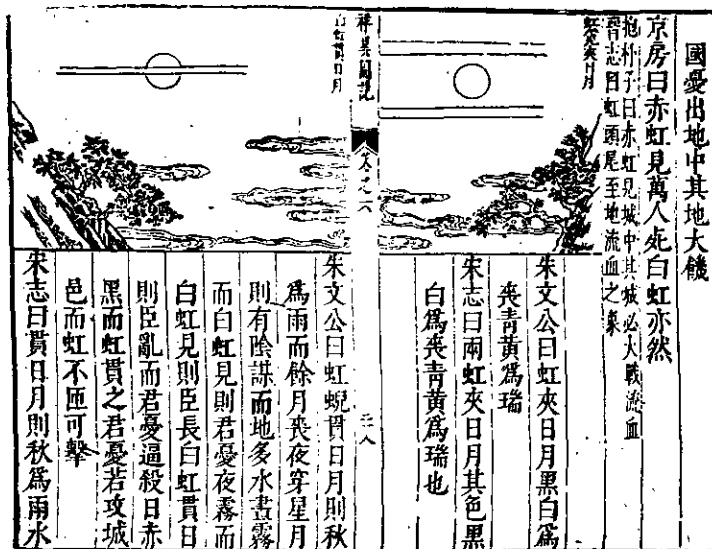 國憂出地中其地大饑
京房曰赤虹見萬人死白虹亦然
抱朴子曰赤虹見城中其城必大戰流血
晉志曰虹頭尾至地流血之象
虹夾日月
朱文公曰虹夾日月黑白爲
喪青黃爲瑞
宋志曰兩虹夾日月其色黑
白爲喪青黃爲瑞也
祥異圖説
卷之六
三八
白虹貫日月
朱文公曰虹蜺貫日月則秋
爲雨而餘月喪夜穿星月
則有陰謀而地多水晝霧
而白虹見則君憂夜霧而
白虹見則臣長白虹貫日
則臣亂而君憂逼殺日赤
黑而虹貫之君憂若攻城
邑而虹不匝可擊
宋志曰貫日月則秋爲雨水